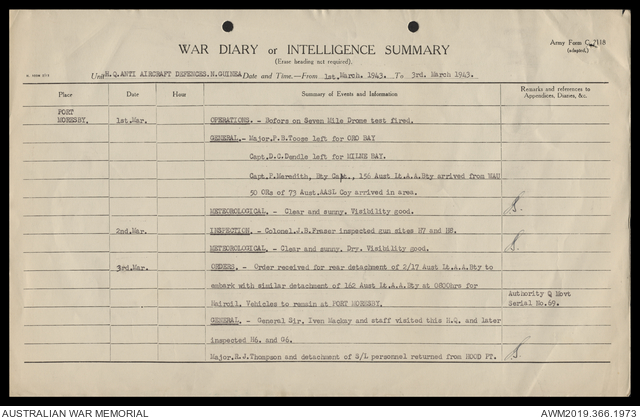 WAR DIARY or INTELLIGENCE SUMMARY
Army Form C.7118
(adapted.)
(Erase heading not required).
Unit H.Q.ANTI AIRCRAFT DEFENCES.N.GUINEA Date and Time.—From 1st.March. 1943. To 3rd. March 1943.
Place Date Hour Summary of Events and Information Remarks and references to Appendices, Diaries, &c.
PORT MORESBY. 1st.Mar. OPERATIONS. - Bofors on Seven Mile Drome test fired.
GENERAL.- Major.P.B.Toose left for ORO BAY
Capt.D.C.Dendle left for MILNE BAY.
Capt.P.Meredith, Bty Capt., 156 Aust Lt.A.A.Bty arrived from WAU
50 ORs of 73 Aust.AASL Coy arrived in area.
METEOROLOGICAL. - Clear and sunny. Visibility good.
2nd.Mar. INSPECTION. - Colonel.J.B.Fraser inspected gun sites H7 and H8.
METEOROLOGICAL. - Clear and sunny. Dry. Visibility good.
3rd.Mar. ORDERS. - Order received for rear detachment of 2/17 Aust Lt.A.A.Bty to
embark with similar detachment of 162 Aust Lt.A.A.Bty at 0800hrs for
Bairoil. Vehicles to remain at PORT MORESBY.
Authority Q Movt
Serial No.69.
GENERAL. - General Sir. Iven Mackay and staff visited this H.Q. and later
inspected H6. and G6.
Major.R.J.Thompson and detachment of S/L personnel returned from HOOD PT.
AUSTRALIAN WAR MEMORIAL
AWM2019.366.1973